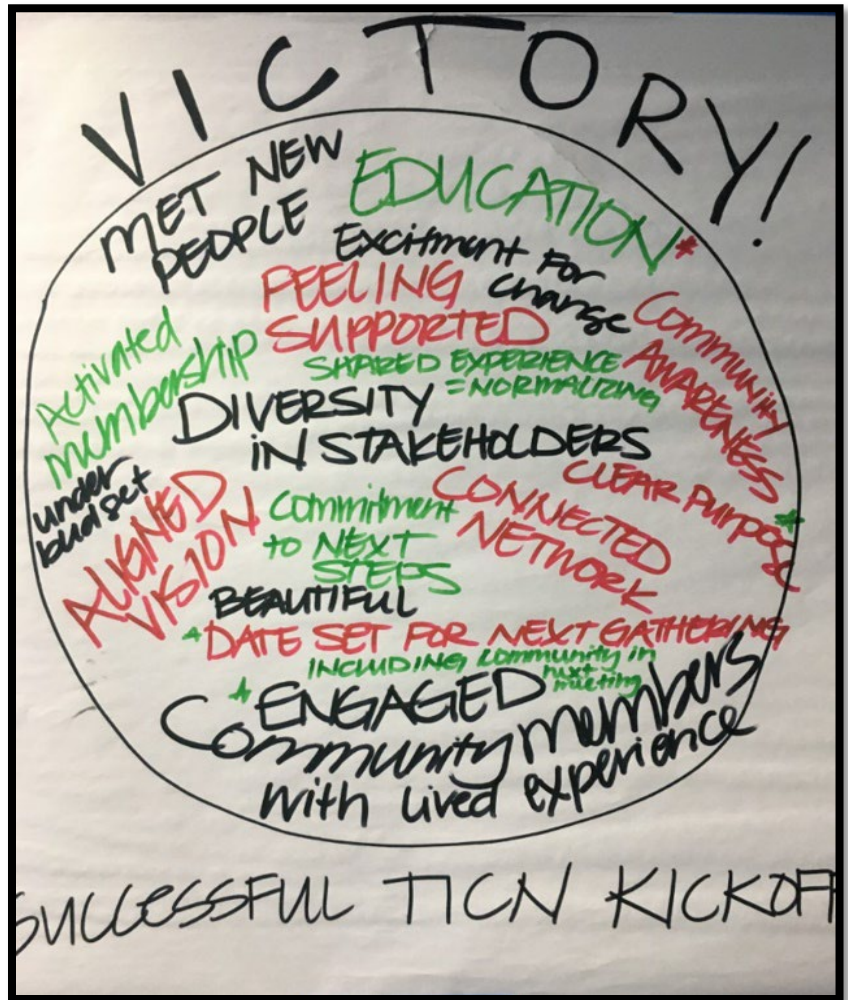 VICTORY!
MET NEW
PEOPLE
EDUCATION*
Excitment For
change
FEELING
SUPPORTED
Community
AWARENESS
Activated
membership
SHARED EXPERIENCE
=NORMALIZING
DIVERSITY
IN STAKEHOLDERS
under
budget
ALIGNED
VISION
Commitment
to NEXT
STEPS
CONNECTED
NETWORK
CLEAR PURPOSE*
BEAUTIFUL
*DATE SET FOR NEXT GATHERING
INCLUDING community in
next
meeting
*ENGAGED
Community members
with lived experience
SUCCESSFUL TICN KICKOFF